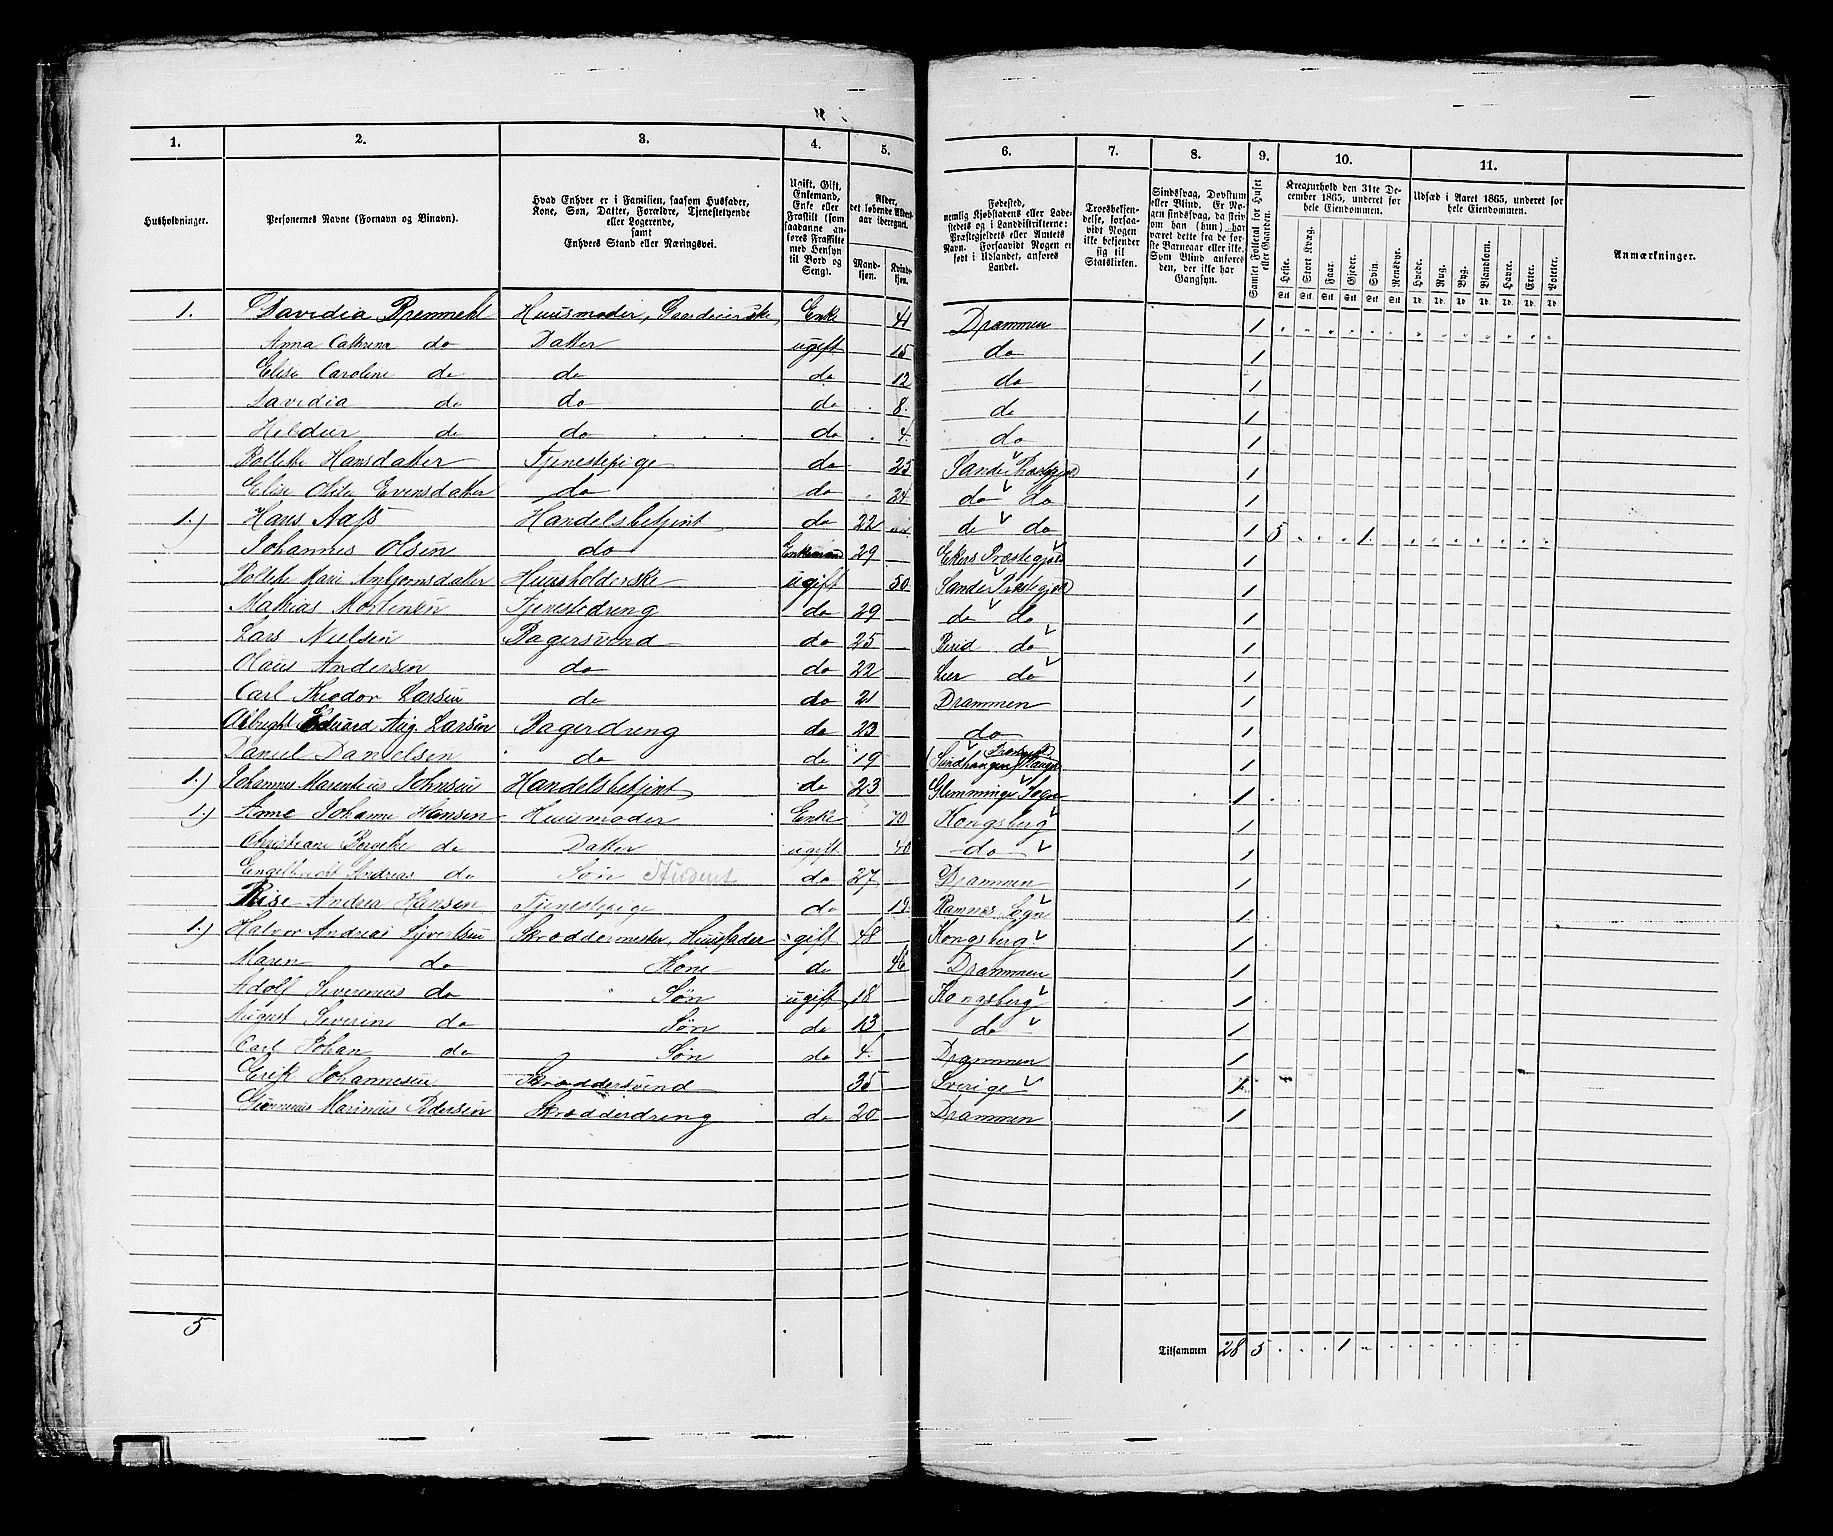 1. 2. 3. 4. 5. 6. 7. 8. 9. 10. 11.
Husholdninger.
Personernes Navne (Fornavn og Tilnavn).
Hvad Enhver er i Familien, saasom Husfader, Kone, Søn, Datter, Forældre, Tjenestetyende eller Logerende, samt Enhvers Stand eller Næringsvei.
Ugift, Gift, Enkemand, Enke eller Fraskilt (som saadanne anføres Fraskilte med Hensyn til Bord og Seng).
Alder, det løbende Alders-aar iberegnet.
Mandkjøn. Kvindekjøn.
Fødested, nemlig Kjøbstadens eller Ladestedets og i Landdistrikterne: Præstegjeldets eller Amtets Navn. Forsaavidt Nogen er født i Udlandet, anføres Landet.
Troesbekjendelse, forsaavidt Nogen ikke bekjender sig til Statskirken.
Sindssvag, Døvstum eller Blind. Er Nogen sindssvag, da skrives om han (hun) har været dette fra de første Barneaar eller ikke. Som Blind anføres den, der ikke har Gangsyn.
Samlet Folketal for Huset eller Gaarden.
Kreaturhold den 31te December 1865, underet for hele Eiendommen.
Heste. Stort Kvæg. Faar. Gjeder. Svin. Rensdyr.
Udsæd i Aaret 1865, underet for hele Eiendommen.
Hvede. Rug. Byg. Blandkorn. Havre. Erter. Poteter.
Anmærkninger.
Stk Stk Stk Stk Stk Stk Td. Td. Td. Td. Td. Td. Td.
1. Davidia Bremnehl Huusmoder, Gaardeierske, Enke 41 Drammen 1
Anna Cathrine do Datter ugift 15 do 1
Elise Caroline do do do 12 do 1
Davidia do do do 8. do 1
Hildur do do do 4. do 1
Bollette Hansdatter Tjenestepige do 25 Sande Præstegjeld 1
Elise Evensdatter do do 24 do do 1
1.) Hans Aass Handelsbetjent do 22 do do 1 5 1
Johannes Olsen do Enkemand 29 Ekers Præstegjeld 1
Bollette Marie Huusholderske ugift 50 Sande Præstegjeld 1
Mathias Mortensen Tjenestedreng do 29 do do 1
Lars Nielsen Bagersvend do 25 do 1
Olaus Andersen do do 22 Lier do 1
Carl Theodor Larsen do do 21 Drammen 1
Albreght Eduard Aug. Larsen Bagerdreng do 23 do 1
Daniel Danielsen do do 19 1
1.) Johannes Marentius Johnsen Handelsbetjent do 23 Glemminge Sogn 1
1.) Anne Johanne Hansen Huusmoder Enke 70 Kongsberg 1
Christiane Bergette do Datter ugift 40 do 1
Engelbrecht Andreas do Søn Student do 27 Drammen 1
Rise Andrea Hansen Tjenestepige do 19 Ramnes Sogn 1
1.) Halvor Andreas Syvertsen Skræddermester, Huusfader gift 48 Kongsberg 1
Maren do Kone do 46 Drammen 1
Adolf Severinus do Søn ugift 18 Kongsberg 1
August Severin do Søn do 13 do 1
Carl Johan do Søn do 4. Drammen 1
Erik Johannesen Skræddersvend 35 Sverige 1
Gunnenus Marinus Pedersen Skrædderdreng do 20 Drammen 1
5 Tilsammen 28 5 1